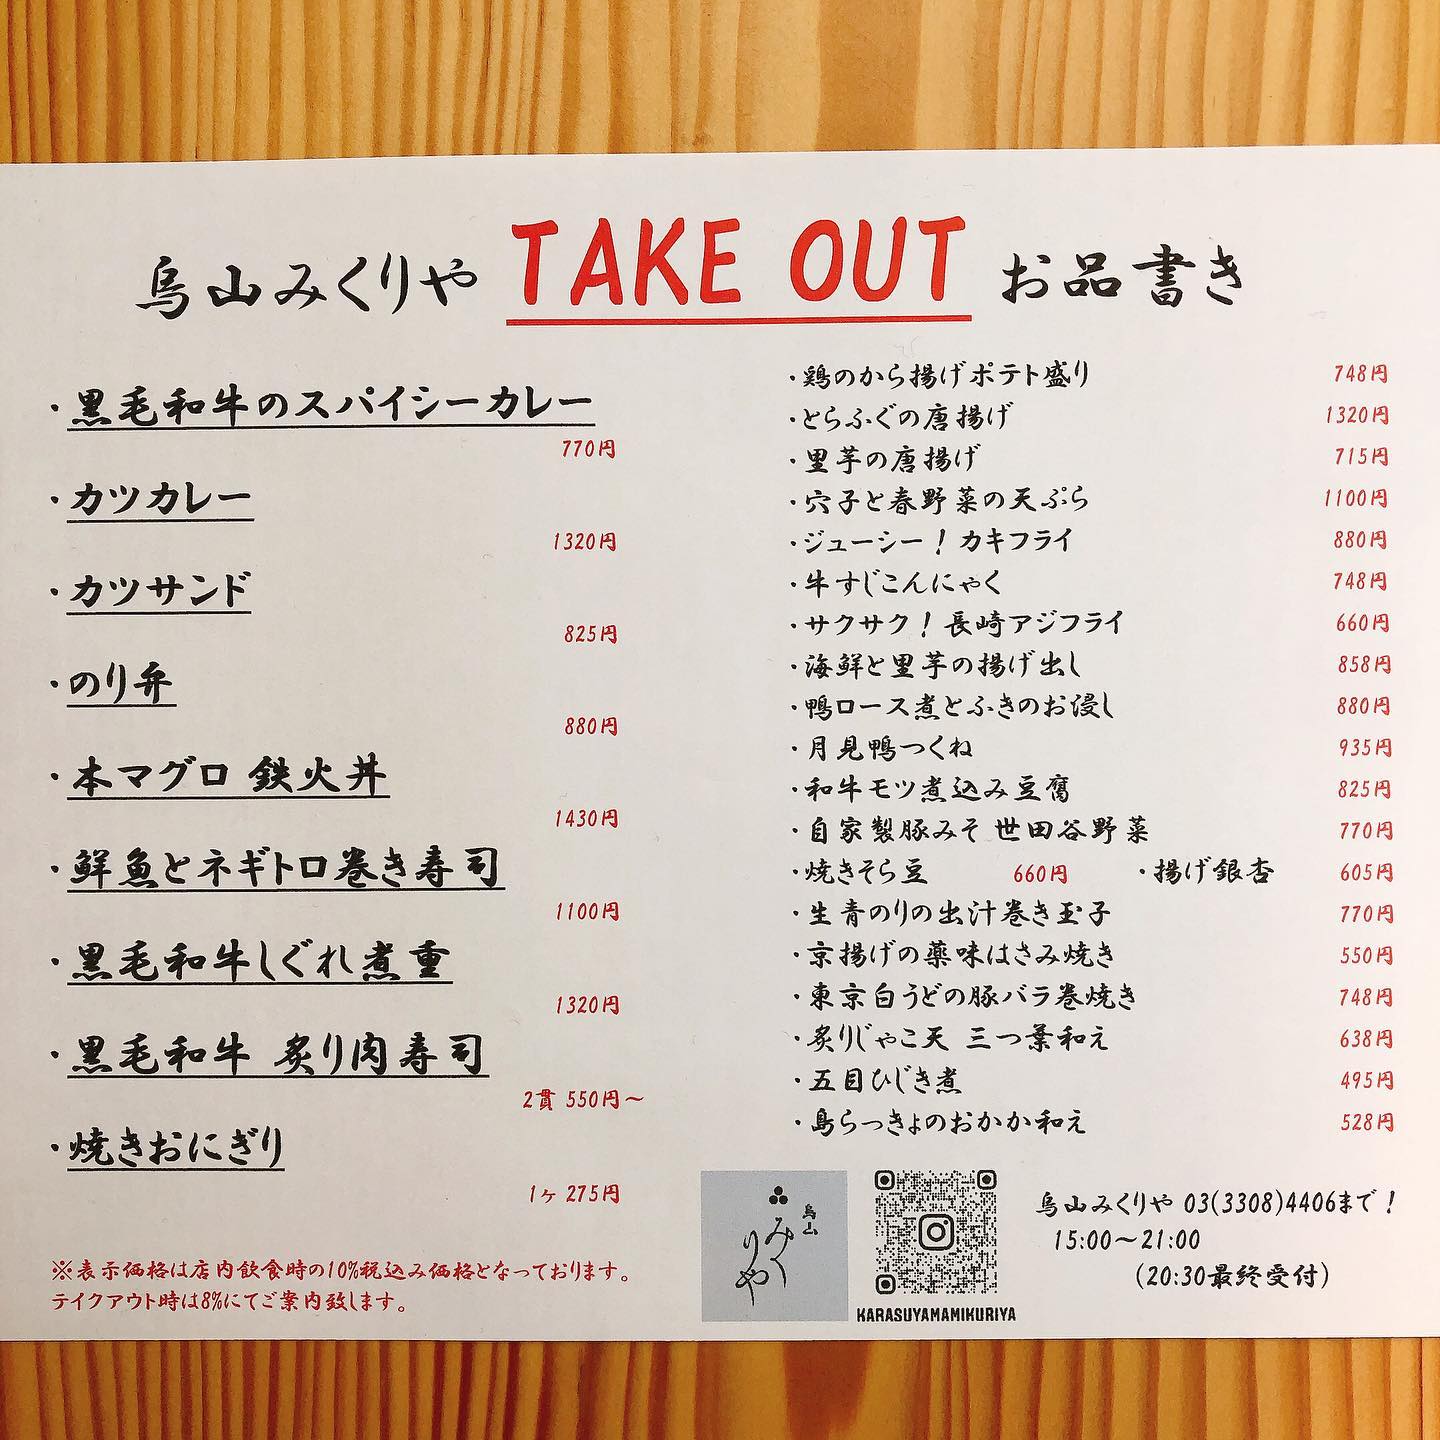 烏山みくりや TAKE OUT お品書き
・黒毛和牛のスパイシーカレー
770円
・カツカレー
1320円
・カツサンド
825円
・のり弁
880円
・本マグロ 鉄火丼
1430円
・鮮魚とネギトロ巻き寿司
1100円
・黒毛和牛しぐれ煮重
1320円
・黒毛和牛 炙り肉寿司
2貫 550円〜
・焼きおにぎり
1ヶ 275円
※表示価格は店内飲食時の10%税込み価格となっております。
テイクアウト時は8%にてご案内致します。
・鶏のから揚げポテト盛り 748円
・とらふぐの唐揚げ 1320円
・里芋の唐揚げ 715円
・穴子と春野菜の天ぷら 1100円
・ジューシー！カキフライ 880円
・牛すじこんにゃく 748円
・サクサク！長崎アジフライ 660円
・海鮮と里芋の揚げ出し 858円
・鴨ロース煮とふきのお浸し 880円
・月見鴨つくね 935円
・和牛モツ煮込み豆腐 825円
・自家製豚みそ 世田谷野菜 770円
・焼きそら豆 660円 ・揚げ銀杏 605円
・生青のりの出汁巻き玉子 770円
・京揚げの薬味はさみ焼き 550円
・東京白うどの豚バラ巻焼き 748円
・炙りじゃこ天 三つ葉和え 638円
・五目ひじき煮 495円
・島らっきょのおかか和え 528円
烏山
みくりや
KARASUYAMAMIKURIYA
烏山みくりや 03(3308)4406まで！
15:00〜21:00
(20:30最終受付)